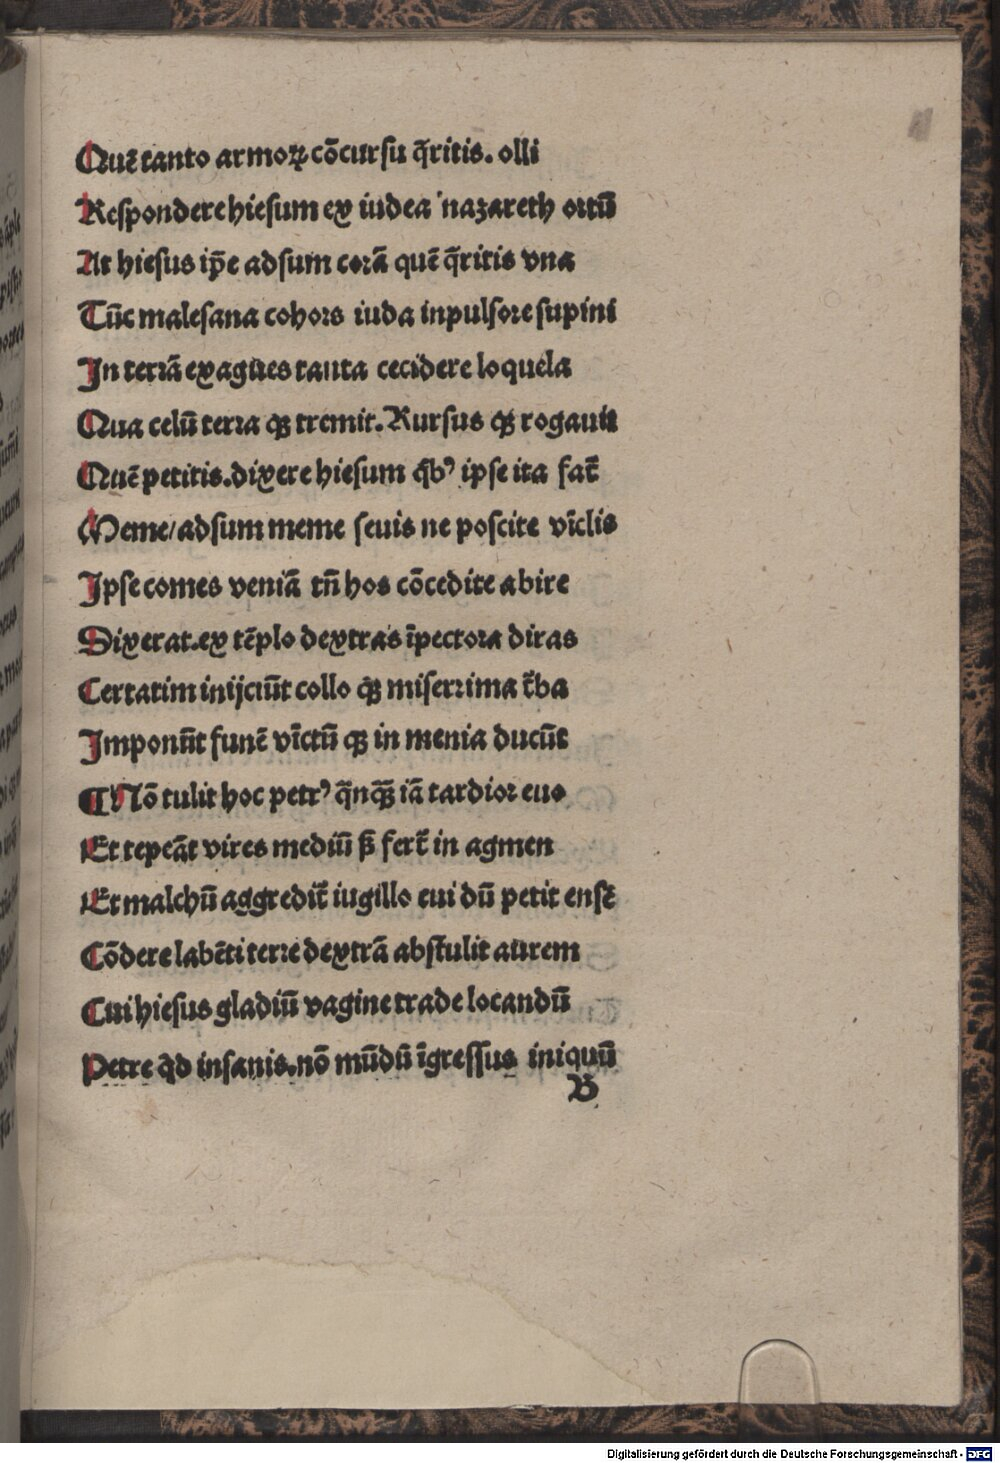 Quē tanto armoꝝ cōcursu q̄ritis. olli
Respondere hiesum ex iudea nazareth ortū
At hiesus ip̄e adsum corā quē q̄ritis vna
Tūc malesana cohors iuda inpulsore supini
In terrā exagūes tanta cecidere loquela
Qua celū terra qꝫ tremit. Rursus qꝫ rogauit
Quē petitis. dixere hiesum qͥbꝰ ipse ita fat᷑
Meme/ adsum meme seuis ne poscite vīclis
Ipse comes veniā tn̄ hos cōcedite abire
Dixerat. ex tēplo dextras īpectora diras
Certatim inijciūt collo qꝫ miserrima t᷑ba
Imponūt funē vīctū qꝫ in menia ducūt
¶ Nō tulit hoc petrꝰ q̄nqꝫ̄ iā tardior euo
Et tepeāt vires mediū ß fert᷑ in agmen
Et malchū aggredit᷑ iugillo cui dū petit ensē
Cōdere labēti terre dextrā abstulit aurem
Cui hiesus gladiū vagine trade locandū
Petre qͥd insanis. nō mūdū īgressus iniquū
B
Digitalisierung gefördert durch die Deutsche Forschungsgemeinschaft - DFG